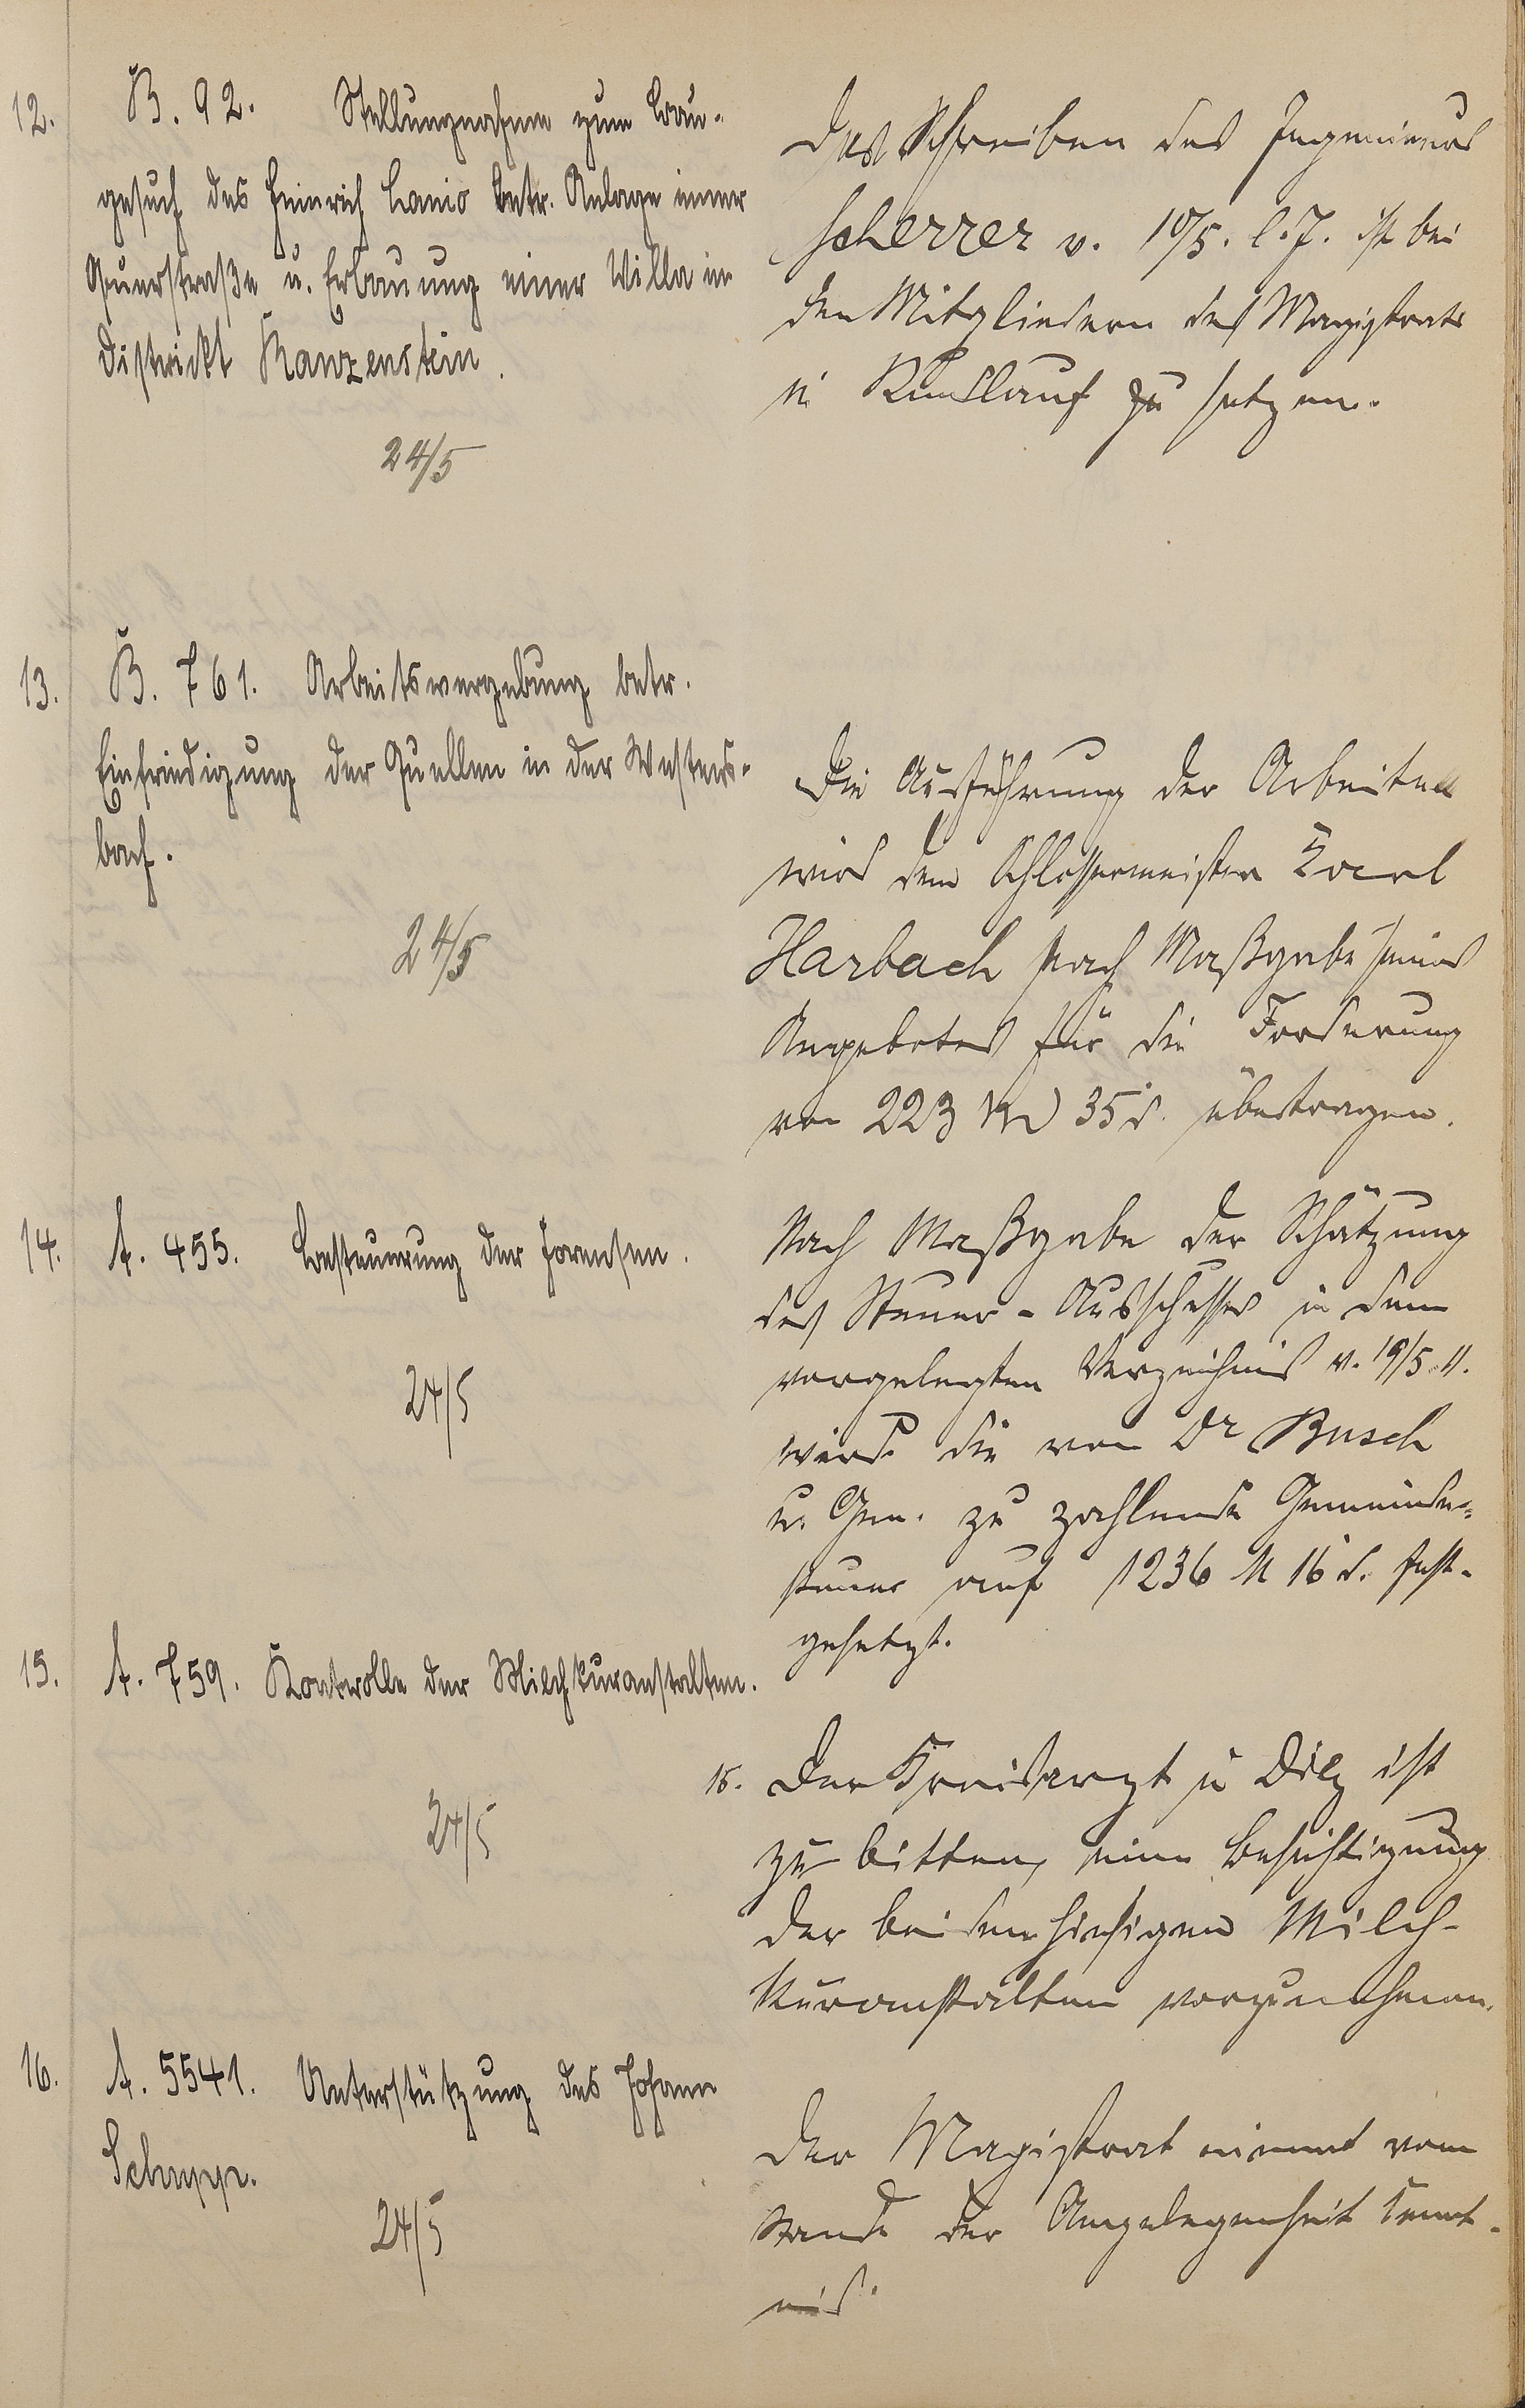 12.
B. 92. Stellungnahme zum Bau-
gesuch des Heinrich Lanio betr. Anlage einer
Querstraße u. Erbauung einer Villa im
Distrikt Kanzenstein.
24/5
Das Schreiben des Ingenieurs
Scherrer v. 10/5. l. J. ist bei
den Mitgliedern des Magistrats
in Rundlauf zu setzen.
13.
B. 761. Arbeitsvergebung betr.
Einfriedigung der Quellen in der Westers-
bach.
24/5
Die Ausführung der Arbeiten
wird dem Schlossermeister Karl
Harbach nach Maßgabe seines
Angebotes für die Forderung
von 223 M 35 d. übertragen.
14.
A. 455. Besteuerung der Forensen.
24/5
Nach Maßgabe der Schätzung
des Steuer-Ausschusses in dem
vorgelegten Verzeichnis v. 19/5. 11.
wird die von Dr Busch
u. Gen. zu zahlende Gemeinde-
steuer auf 1236 M 16 d. fest-
gesetzt.
15.
A. 759. Kontrolle der Milchkuranstalten.
24/5
15. Der Kreisarzt in Diez ist
zu bitten, eine Besichtigung
der beiden hiesigen Milch-
kuranstalten vorzunehmen.
16.
A. 5541. Unterstützung des Johann
Schupp.
24/5
Der Magistrat nimmt vom
Stande der Angelegenheit Kennt-
nis.